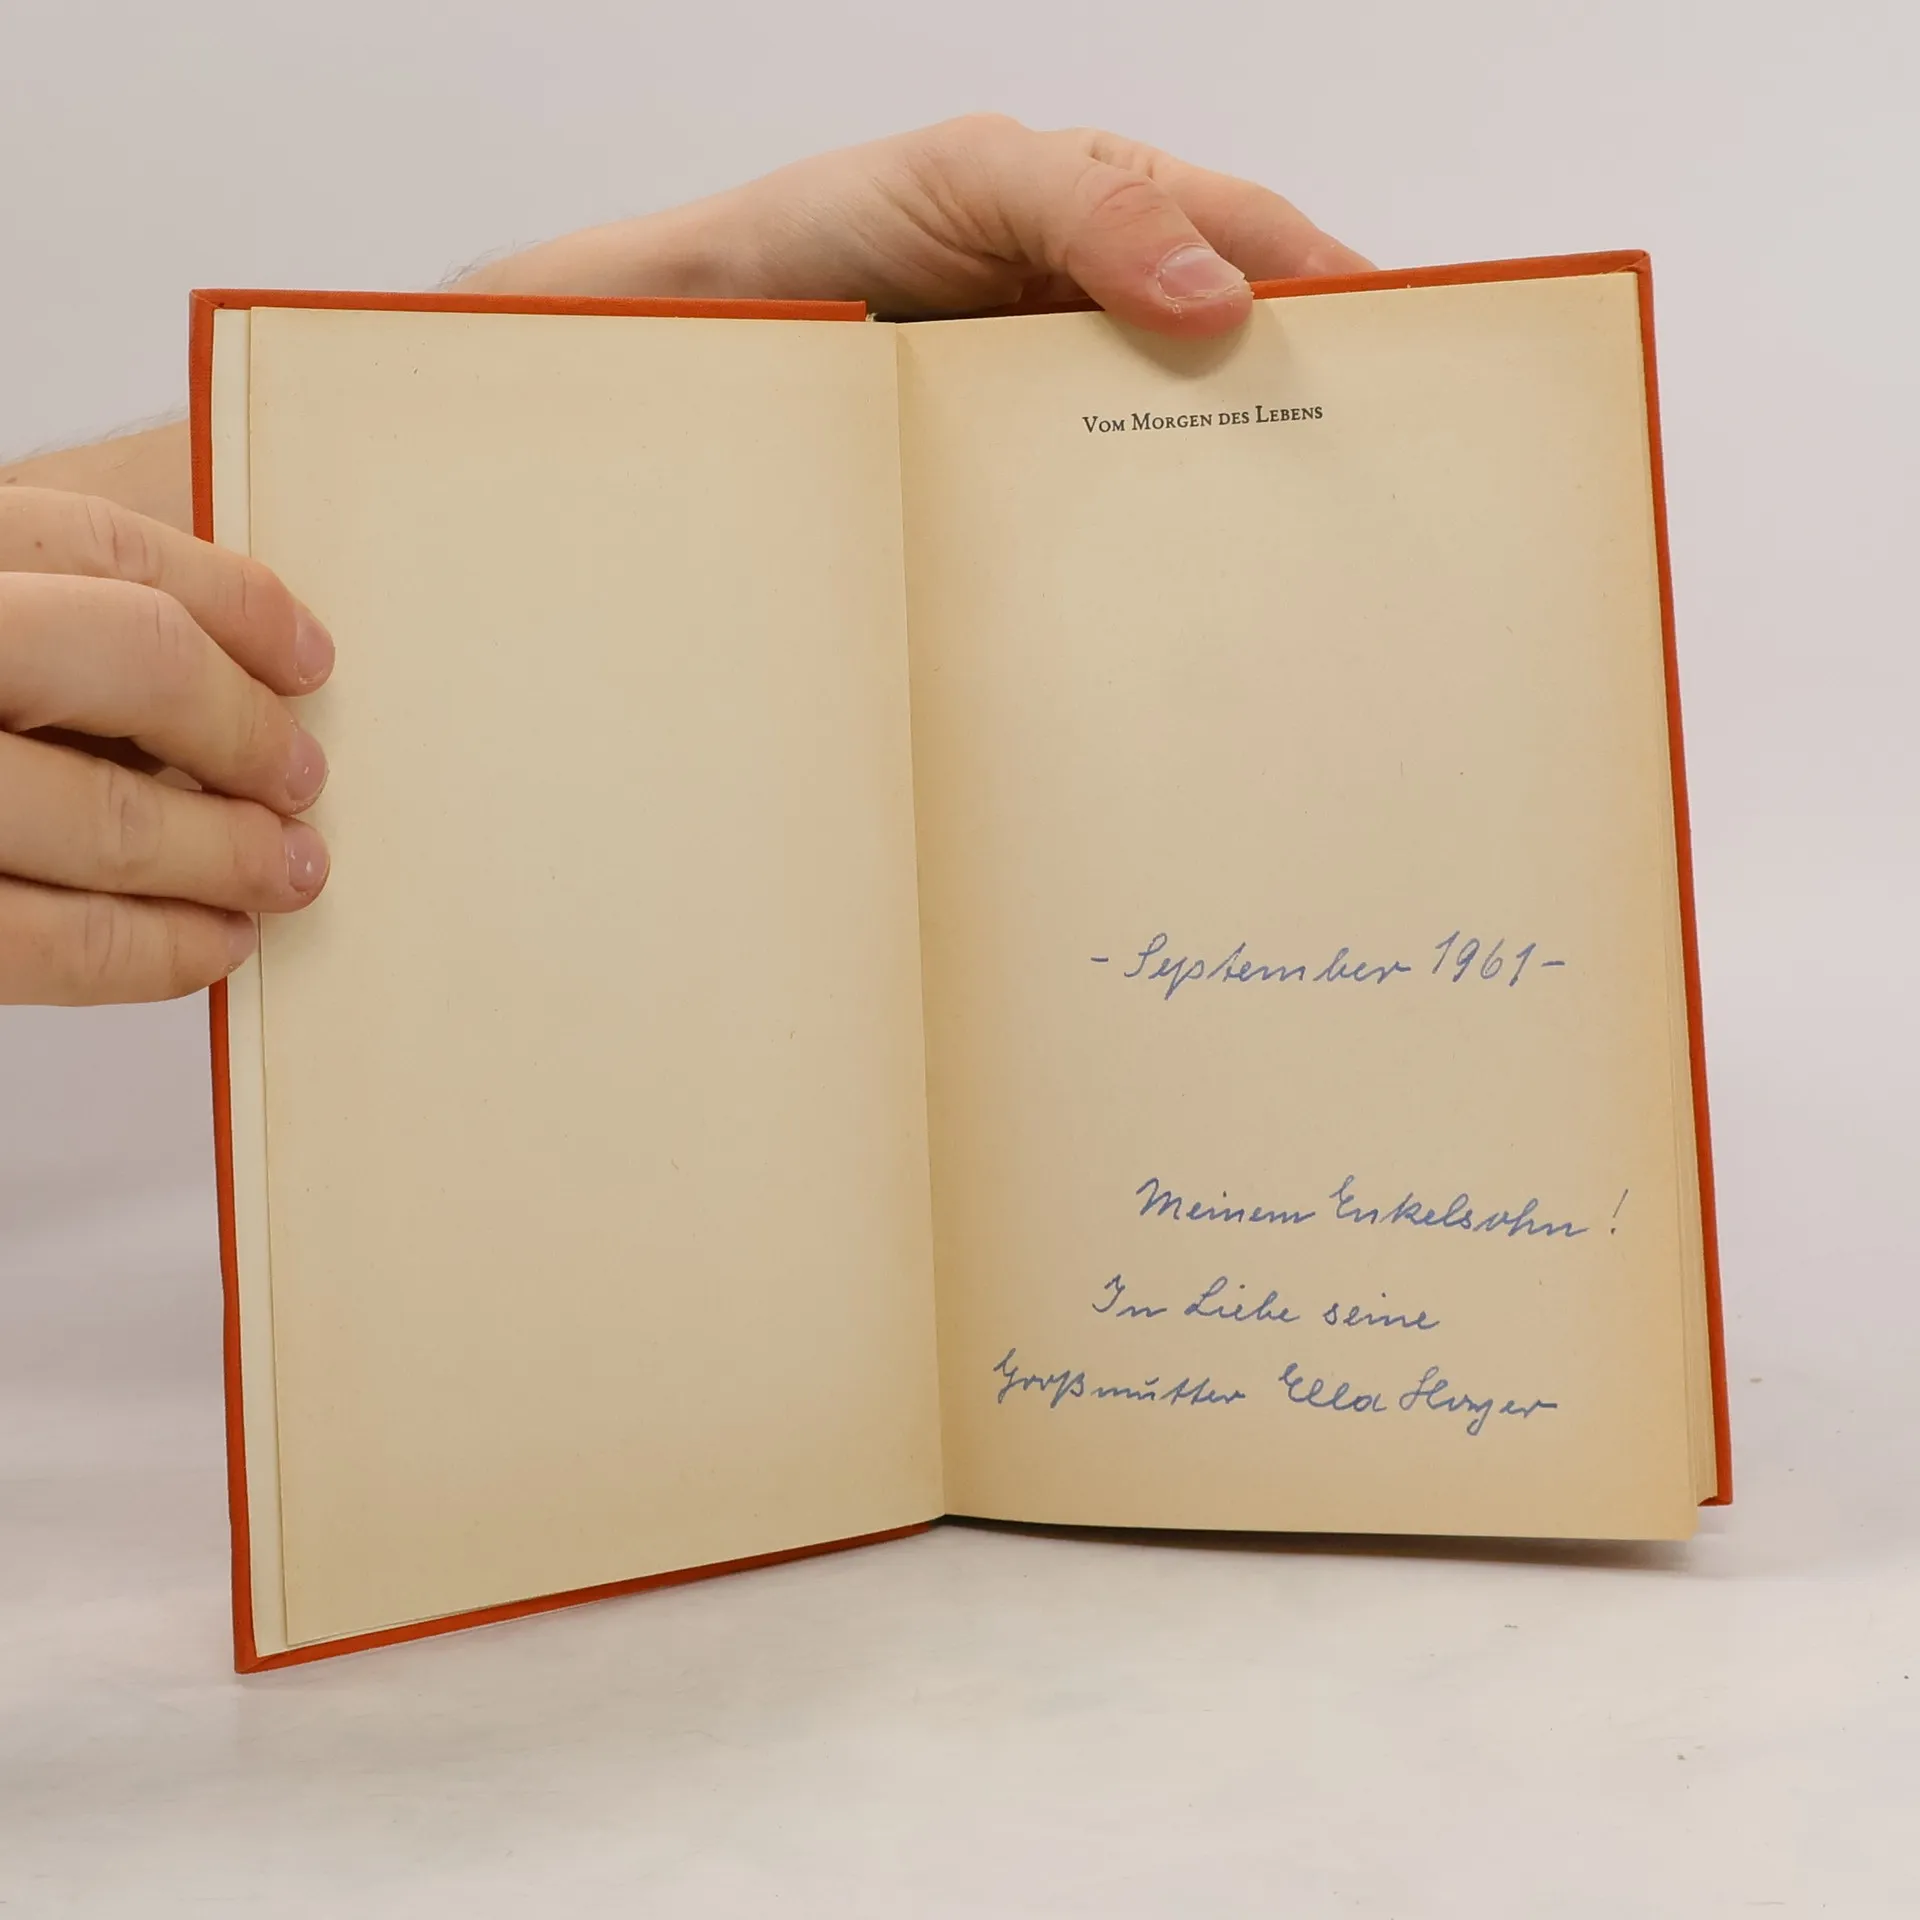 VOM MORGEN DES LEBENS
- September 1961 -
Meinem Enkelsohn!
In Liebe seine
Großmutter Ella Hoyer